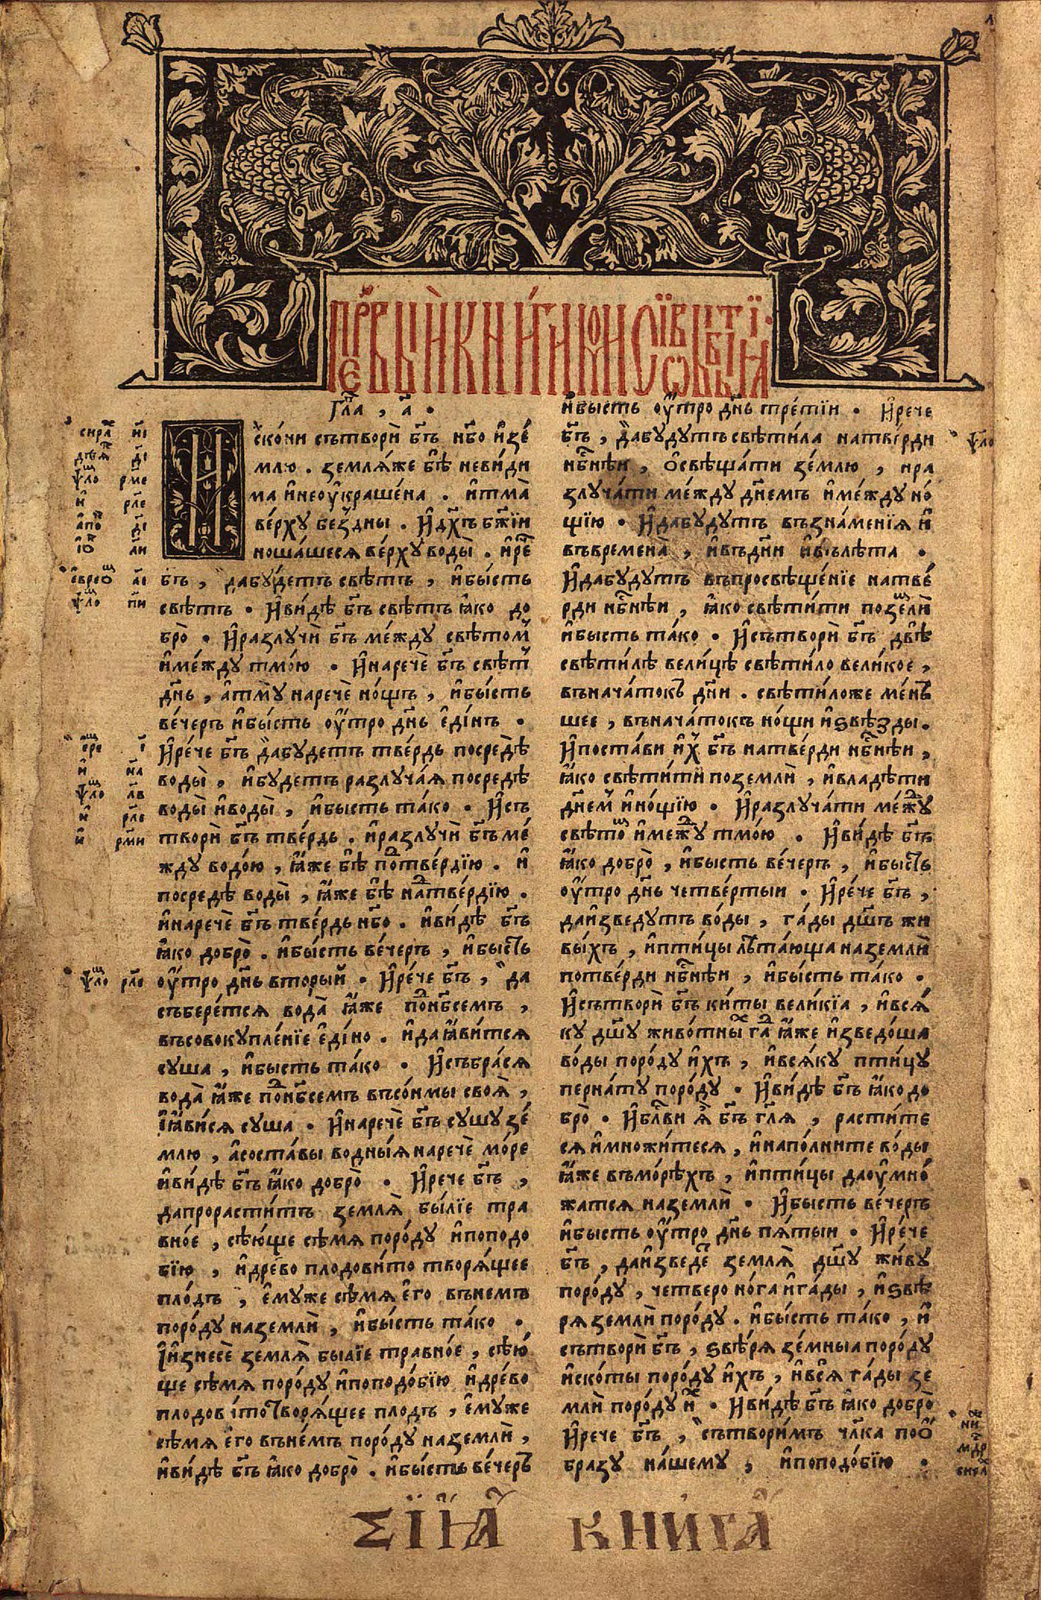 Гл҃а , а҃ .
И
скони сътвори бг҃ъ нб҃о изе
млю . земляже бѣ невиди
ма инеоукрашена . итма
верху бездны . Идх҃ъ бж҃іи
ношашеся верху воды . ирⷱ҇е
бг҃ъ , дабудетъ свѣтъ , ибысть
свѣтъ . Ивидѣ бг҃ъ свѣтъ ꙗко до
бро . Иразлучи бг҃ъ между свѣтоⷨ
имежду тмою . Инарече бг҃ъ свѣтⷮ
дн҃ь , атму нарече нощъ , ибысть
вечеръ ибысть оутро дн҃ь единъ .
Ирече бг҃ъ дабудетъ твердь посредѣ
воды , ибудетъ разлучая посредѣ
воды иводы , ибысть тако . Исъ
твори бг҃ъ твердь . иразлучи бг҃ъ ме
жду водою , ꙗже бѣ поⷣтвердію . и
посредѣ воды , ꙗже бѣ наⷣтвердію .
инарече бг҃ъ твердь нб҃о . ивидѣ бг҃ъ
ꙗко добро . ибысть вечеръ , ибысть
оутро дн҃ь вторый . Ирече бг҃ъ , да
съберется вода ꙗже поⷣнб҃семъ ,
въсовокупленіе едино . идаꙗвится
суша , ибысть тако . Исъбрася
вода ꙗже поⷣнб҃семъ въсонмы своя ,
Іꙗвися суша . Инарече бг҃ъ сушу зе
млю , асоставы водныя нарече море
ивидѣ бг҃ъ ꙗко добро . Ирече бг҃ъ ,
дапрораститъ земля быліе тра
вное , сѣюще сѣмя породу ипоподо
бію , идрево плодовито творящее
плодъ , емуже сѣмя его внемъ
породу наземли , ибысть тако .
Іизнесе земля быліе травное , сѣю
ще сѣмя породу ипоподобію идрево
плодовітотворящее плодъ , емуже
сѣмя его внемъ породу наземли ,
ивидѣ бг҃ъ ꙗко добро . ибысть вечеръ
ибысть оутро дн҃ь третіи . Ирече
бг҃ъ , дабудутъ свѣтила натверди
нб҃нѣи , освѣщати землю , ира
злучати между днемъ имежду но
щію . Идабудутъ възнаменія и
въвремена , ивъдни ивълѣта .
Идабудутъ въпросвѣщеніе натве
рди нб҃нѣи , ꙗко свѣтити поземли
ибысть тако . Исътвори бг҃ъ двѣ
свѣтилѣ велицѣ свѣтило великое ,
въначатокъ дни . свѣтиложе мень
шее , въначатокъ нощи извѣзды .
Ипостави иⷯ бг҃ъ натверди нб҃нѣи ,
ꙗко свѣтити поземли , ивладѣти
днемъ инощію . Иразлучати межⷣу
свѣтоⷨ имежⷣу тмою . Ивидѣ бг҃ъ
ꙗко добро , ибысть вечеръ , ибысть
оутро дн҃ь четвертыи . Ирече бг҃ъ ,
даизведутъ воды , гады дш҃ъ жи
выхъ , иптицы лѣтающа наземли
потверди нб҃нѣи , ибысть тако .
Исътвори бг҃ъ киты великіа , ився
ку дш҃у животныⷯ гаⷣ ꙗже изведоша
воды породу ихъ , ивсяку птицу
пернату породу . Ивидѣ бг҃ъ ꙗко до
бро . Ибл҃ви я бг҃ъ гл҃я , растите
ся имножитеся , инаполните воды
ꙗже вморѣхъ , иптицы даоумно
жатся наземли . Ибысть вечеръ
ибысть оутро дн҃ь пятыи . Ирече
бг҃ъ , даизведеⷮ земля дш҃у живу
породу , четверонога игады , извѣ
ря земли породу . ибысть тако , и
сътвори бг҃ъ , звѣря земныа породу
искоты породу ихъ , ився гады зе
мли породу иⷯ . Ивидѣ бг҃ъ ꙗко добро
Ирече бг҃ъ , сътворимъ чл҃ка поо
бразу нашему , ипоподобію .
СІЯ КНИГА